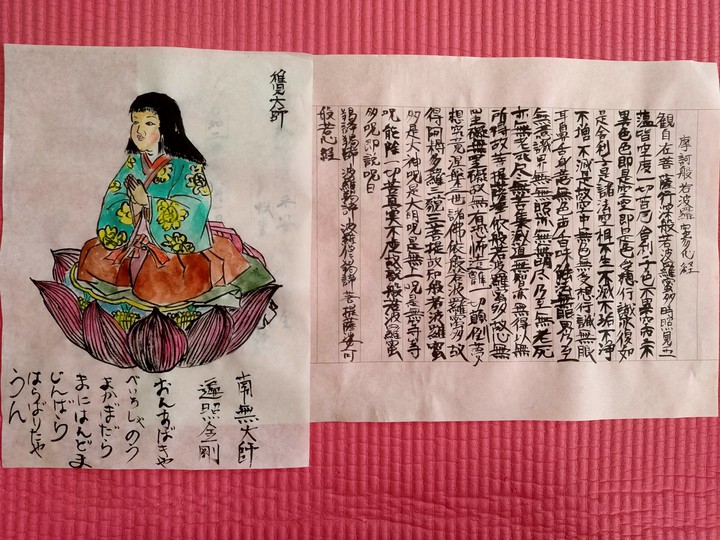 摩訶般若波羅蜜多心経
観自在菩薩行深般若波羅蜜多時照見五
蘊皆空度一切苦厄舎利子色不異空空不
異色色即是空空即是色受想行識亦復如
是舎利子是諸法空相不生不滅不垢不浄
不増不減是故空中無色無受想行識無眼
耳鼻舌身意無色声香味触法無眼界乃至
無意識界無無明亦無無明尽乃至無老死
亦無老死尽無苦集滅道無智亦無得以無
所得故菩提薩埵依般若波羅蜜多故心無
罣礙無罣礙故無有恐怖遠離一切顛倒夢
想究竟涅槃三世諸仏依般若波羅蜜多故
得阿耨多羅三藐三菩提故知般若波羅蜜
多是大神呪是大明呪是無上呪是無等等
呪能除一切苦真実不虚故説般若波羅蜜
多呪即説呪曰
羯諦羯諦波羅羯諦波羅僧羯諦菩提薩婆訶
般若心経
稚児大師
南無大師
遍照金剛
おんあぼきや
べいろしゃのう
まかぼだら
まにはんどま
じんばら
はらばりたや
うん